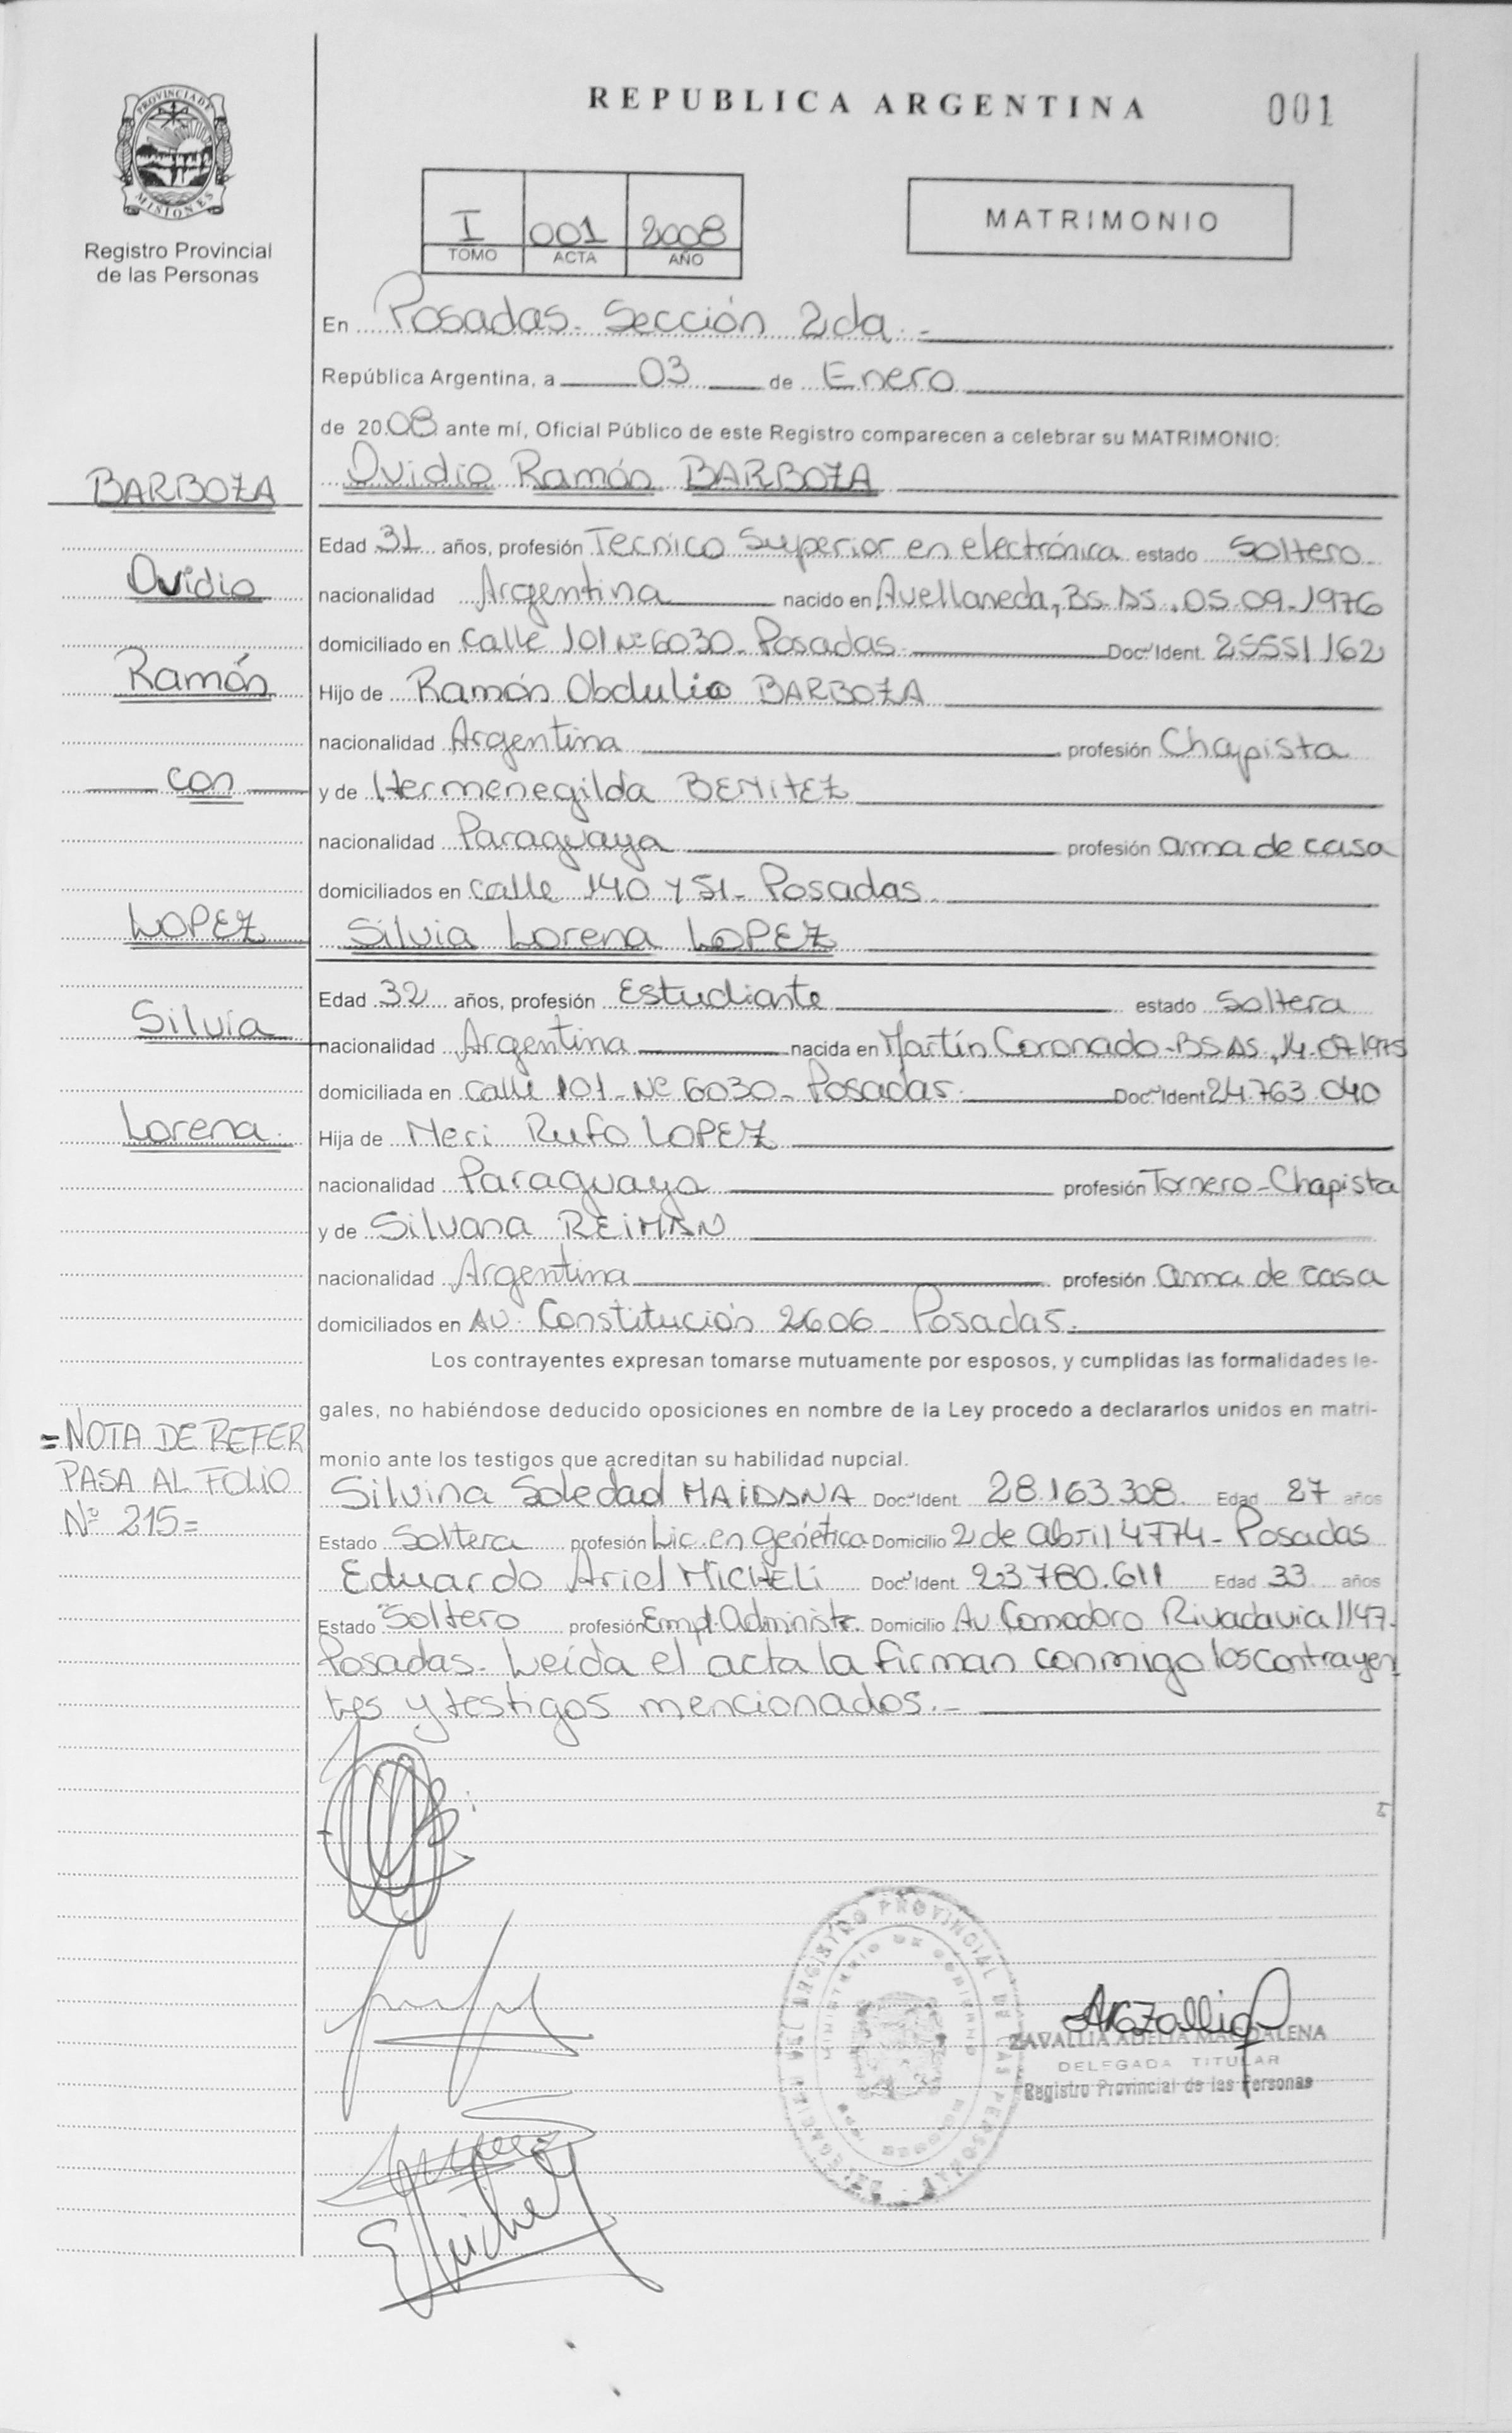 REPUBLICA ARGENTINA
001
PROVINCIA DE
MISIONES
Registro Provincial
de las Personas
I 001 2008
TOMO ACTA AÑO
MATRIMONIO
En Posadas - Sección 2da. -
República Argentina, a 03 de Enero
de 2008 ante mí, Oficial Público de este Registro comparecen a celebrar su MATRIMONIO:
BARBOZA
Ovidio Ramón BARBOZA
Edad 31 años, profesión Tecnico Superior en electrónica estado Soltero
Ovidio
nacionalidad Argentina nacido en Avellaneda, Bs. As. 05-09-1976
domiciliado en Calle 101 Nº 6030 - Posadas. Doc. Ident. 25551162
Ramón
Hijo de Ramón Obdulio BARBOZA
nacionalidad Argentina profesión Chapista
con
y de Hermenegilda BENITEZ
nacionalidad Paraguaya profesión ama de casa
domiciliados en calle 140 y 51 - Posadas
LOPEZ
Silvia Lorena LOPEZ
Edad 32 años, profesión Estudiante estado Soltera
Silvia
nacionalidad Argentina nacida en Martín Coronado - Bs As, 14-07-1975
domiciliada en Calle 101 - Nº 6030 - Posadas. Doc. Ident 24.763.040
Lorena.
Hija de Neri Rufo LOPEZ
nacionalidad Paraguaya profesión Tornero - Chapista
y de Silvana REIMAN
nacionalidad Argentina profesión ama de casa
domiciliados en Av. Constitución 2606 - Posadas.
Los contrayentes expresan tomarse mutuamente por esposos, y cumplidas las formalidades le-
gales, no habiéndose deducido oposiciones en nombre de la Ley procedo a declararlos unidos en matri-
monio ante los testigos que acreditan su habilidad nupcial.
= NOTA DE REFER
PASA AL FOLIO
Nº 215 =
Silvina Soledad MAIDANA Doc. Ident. 28.163.308 Edad 27 años
Estado Soltera profesión Lic. en genética Domicilio 2 de Abril 4774 - Posadas
Eduardo Ariel MICHELI Doc. Ident. 23.780.611 Edad 33 años
Estado Soltero profesión Empl. Administr. Domicilio Av Comodoro Rivadavia 1147.
Posadas - Leída el acta la firman conmigo los contrayen
tes y testigos mencionados. -
ZAVALLIA ADELIA MAGDALENA
DELEGADA TITULAR
Registro Provincial de las Personas